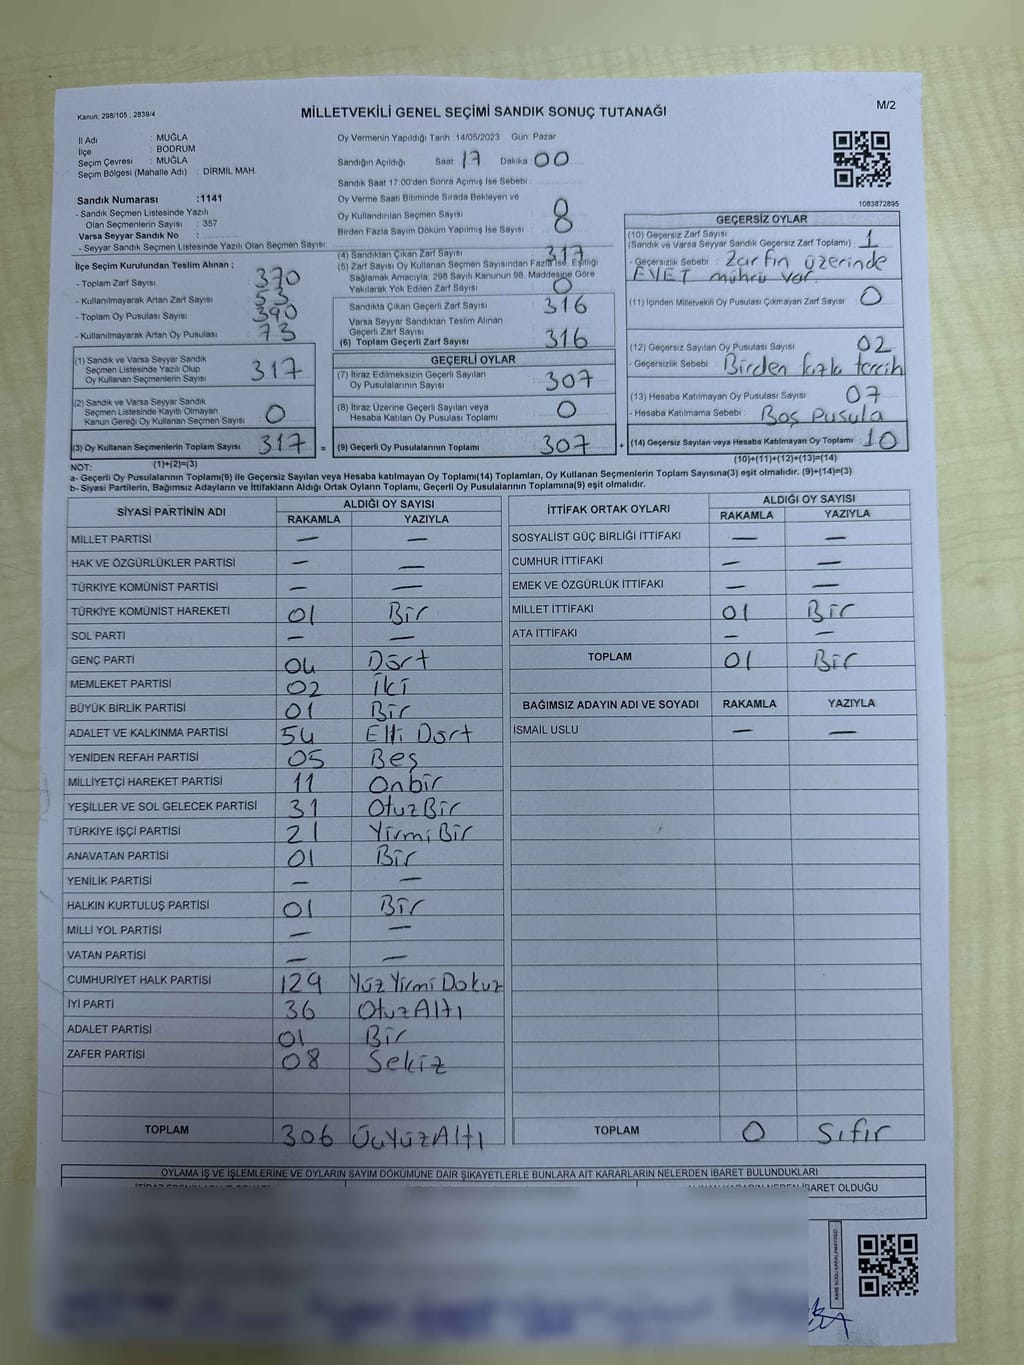 Kanun, 298/105 , 2839/4
MİLLETVEKİLİ GENEL SEÇİMİ SANDIK SONUÇ TUTANAĞI
M/2
İl Adı : MUĞLA
İlçe : BODRUM
Seçim Çevresi : MUĞLA
Seçim Bölgesi (Mahalle Adı) : DİRMİL MAH.
Oy Vermenin Yapıldığı Tarih 14/05/2023 Gün: Pazar
Sandığın Açıldığı Saat 17 Dakika 00
Sandık Saat 17:00'den Sonra Açımış İse Sebebi :
Sandık Numarası :1141
- Sandık Seçmen Listesinde Yazılı
Olan Seçmenlerin Sayısı : 357
Varsa Seyyar Sandık No :
- Seyyar Sandık Seçmen Listesinde Yazılı Olan Seçmen Sayısı:
Oy Verme Saati Bitiminde Sırada Bekleyen ve
Oy Kullandırılan Seçmen Sayısı
Birden Fazla Sayım Döküm Yapılmış İse Sayısı : 8
1083872895
İlçe Seçim Kurulundan Teslim Alınan ;
- Toplam Zarf Sayısı : 370
- Kullanılmayarak Artan Zarf Sayısı : 53
- Toplam Oy Pusulası Sayısı : 390
- Kullanılmayarak Artan Oy Pusulası : 73
(1) Sandık ve Varsa Seyyar Sandık
Seçmen Listesinde Yazılı Olup
Oy Kullanan Seçmenlerin Sayısı 317
(2) Sandık ve Varsa Seyyar Sandık
Seçmen Listesinde Kayıtlı Olmayan
Kanun Gereği Oy Kullanan Seçmen Sayısı 0
(3) Oy Kullanan Seçmenlerin Toplam Sayısı 317 =
(1)+(2)=(3)
(4) Sandıktan Çıkan Zarf Sayısı 317
(5) Zarf Sayısı Oy Kullanan Seçmen Sayısından Fazla İse, Eşitliği
Sağlamak Amacıyla, 298 Sayılı Kanunun 98. Maddesine Göre
Yakılarak Yok Edilen Zarf Sayısı : 0
Sandıkta Çıkan Geçerli Zarf Sayısı 316
Varsa Seyyar Sandıktan Teslim Alınan
Geçerli Zarf Sayısı
(6) Toplam Geçerli Zarf Sayısı 316
GEÇERLİ OYLAR
(7) İtiraz Edilmeksizin Geçerli Sayılan
Oy Pusulalarının Sayısı 307
(8) İtiraz Üzerine Geçerli Sayılan veya
Hesaba Katılan Oy Pusulası Toplamı 0
(9) Geçerli Oy Pusulalarının Toplamı 307 +
GEÇERSİZ OYLAR
(10) Geçersiz Zarf Sayısı
(Sandık ve Varsa Seyyar Sandık Geçersiz Zarf Toplamı) : 1
- Geçersizlik Sebebi : Zarfın üzerinde
EVET mührü var.
(11) İçinden Milletvekili Oy Pusulası Çıkmayan Zarf Sayısı : 0
(12) Geçersiz Sayılan Oy Pusulası Sayısı : 02
- Geçersizlik Sebebi : Birden fazla tercih
(13) Hesaba Katılmayan Oy Pusulası Sayısı : 07
- Hesaba Katılmama Sebebi : Boş Pusula
(14) Geçersiz Sayılan veya Hesaba Katılmayan Oy Toplamı : 10
(10)+(11)+(12)+(13)=(14)
NOT:
a- Geçerli Oy Pusulalarının Toplamı(9) ile Geçersiz Sayılan veya Hesaba katılmayan Oy Toplamı(14) Toplamları, Oy Kullanan Seçmenlerin Toplam Sayısına(3) eşit olmalıdır. (9)+(14)=(3)
b- Siyasi Partilerin, Bağımsız Adayların ve İttifakların Aldığı Ortak Oyların Toplamı, Geçerli Oy Pusulalarının Toplamına(9) eşit olmalıdır.
SİYASİ PARTİNİN ADI ALDIĞI OY SAYISI
RAKAMLA YAZIYLA
MİLLET PARTİSİ — —
HAK VE ÖZGÜRLÜKLER PARTİSİ — —
TÜRKİYE KOMÜNİST PARTİSİ — —
TÜRKİYE KOMÜNİST HAREKETİ 01 Bir
SOL PARTİ — —
GENÇ PARTİ 04 Dört
MEMLEKET PARTİSİ 02 İki
BÜYÜK BİRLİK PARTİSİ 01 Bir
ADALET VE KALKINMA PARTİSİ 54 Elli Dört
YENİDEN REFAH PARTİSİ 05 Beş
MİLLİYETÇİ HAREKET PARTİSİ 11 Onbir
YEŞİLLER VE SOL GELECEK PARTİSİ 31 OtuzBir
TÜRKİYE İŞÇİ PARTİSİ 21 Yirmi Bir
ANAVATAN PARTİSİ 01 Bir
YENİLİK PARTİSİ — —
HALKIN KURTULUŞ PARTİSİ 01 Bir
MİLLİ YOL PARTİSİ — —
VATAN PARTİSİ — —
CUMHURİYET HALK PARTİSİ 129 Yüz Yirmi Dokuz
İYİ PARTİ 36 OtuzAltı
ADALET PARTİSİ 01 Bir
ZAFER PARTİSİ 08 Sekiz
TOPLAM 306 ÜçYüzAltı
İTTİFAK ORTAK OYLARI ALDIĞI OY SAYISI
RAKAMLA YAZIYLA
SOSYALİST GÜÇ BİRLİĞİ İTTİFAKI — —
CUMHUR İTTİFAKI — —
EMEK VE ÖZGÜRLÜK İTTİFAKI — —
MİLLET İTTİFAKI 01 Bir
ATA İTTİFAKI — —
TOPLAM 01 Bir
BAĞIMSIZ ADAYIN ADI VE SOYADI RAKAMLA YAZIYLA
İSMAİL USLU — —
TOPLAM 0 Sıfır
OYLAMA İŞ VE İŞLEMLERİNE VE OYLARIN SAYIM DÖKÜMÜNE DAİR ŞİKAYETLERLE BUNLARA AİT KARARLARIN NELERDEN İBARET BULUNDUKLARI
İBARET OLDUĞU
KARE KODU KARALAMAYINIZ!